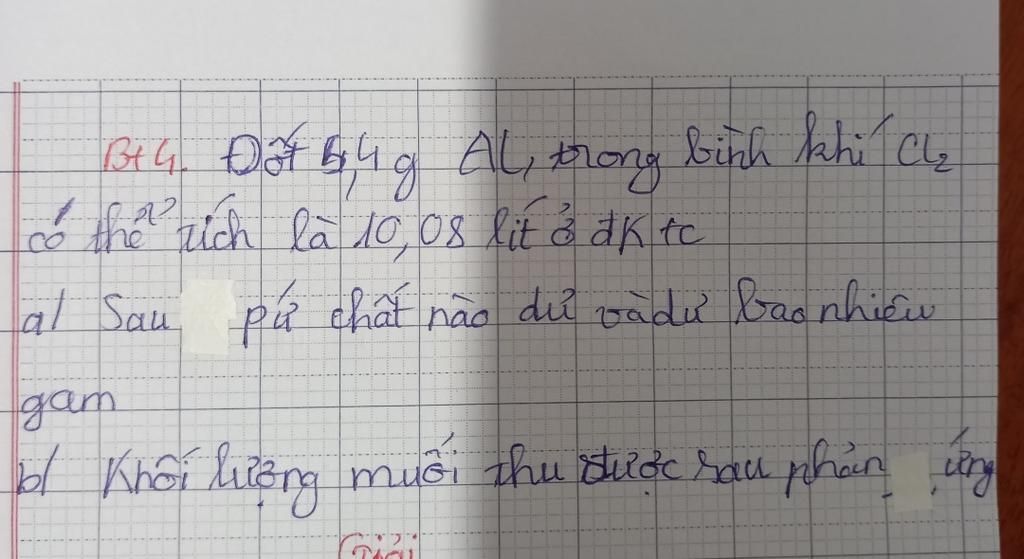 Bt 4. Đốt 5,4 g Al, trong bình khí Cl₂
có thể tích là 10,08 lít ở đktc
a/ Sau pứ chất nào dư và dư bao nhiêu
gam
b/ Khối lượng muối thu được sau phản ứng
Giải